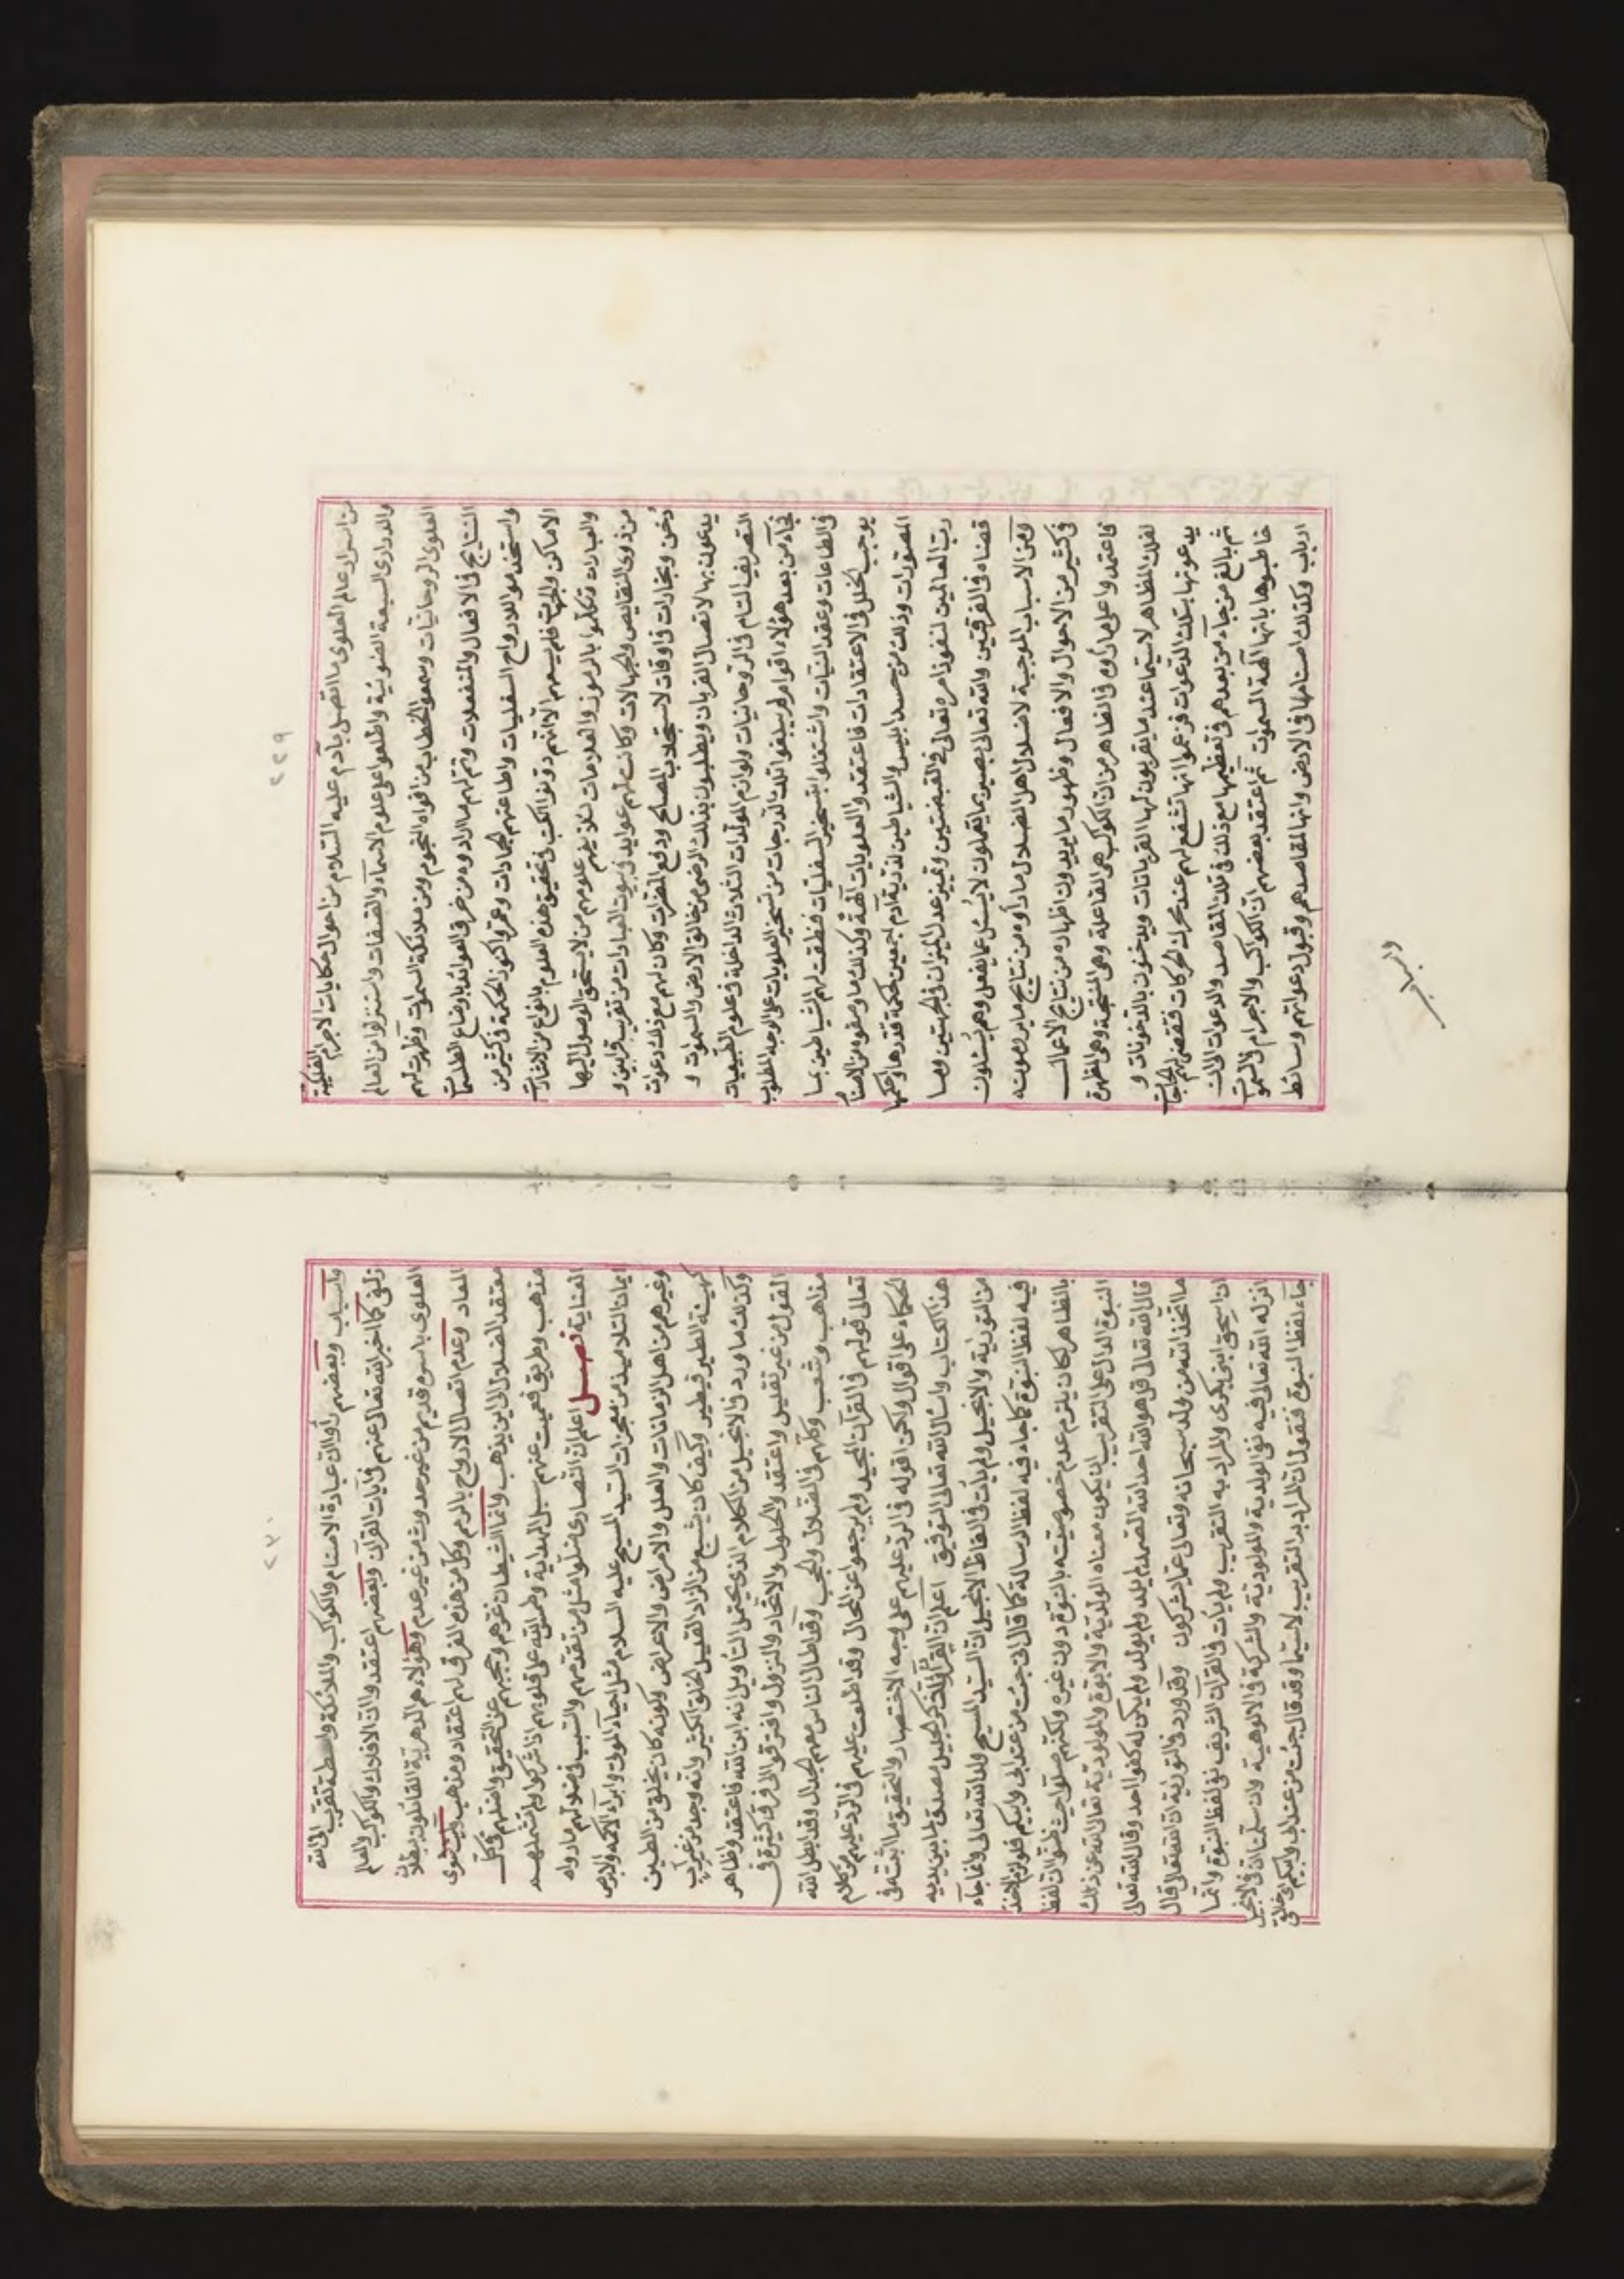 ٢٢٩
من اسرار عالم العلوى ما اتصل بآدم عليه السلام من احوال حكايات الاجرام الفلكية
والدرارى السبعة الضوئية واطلعوا على علوم الاسمآء والصفات واستنزلوا من العالم
العلوى الروحانيات وسمعوا الخطاب من افواه النجوم ومن ملائكة السموات وظهرت لهم
النتايج فى الافعال والمنفعلات وتم لهم ما ارادوه من خرق العوائد باوضاع الطلسمات
واستخدموا الارواح السفليات واطاعتهم الجمادات وعمروا كنوز الحكمة فى كثير من
الاماكن والجهات فلم يسعهم الا انهم دونوا الكتب فى تحقيق هذه العلوم بانواع من الاشارات
والعبارات تكلموا بالرموز والعلامات لئلا يفهم علومهم من لا يستحق الوصول اليها
من ذوى النقايص والجهالات وكانت لهم عوايد فى بيوت العبادات من تقريب قرابين و
دخن وبخارات فى اوقات لاستجلاب المصالح ودفع المضرات وكان لهم مع ذلك دعوات
يدعون بها لاتصال القربان ويطلبون بذلك الرضى من خالق الارض والسموات و
التصريف التام فى الروحانيات ولوازم المولدات الثلاث الداخلة فى علوم الطبيعيات
فجآء من بعد هؤلاء اقوام لم يبلغوا تلك الدرجات من تسخير العلويات على الوجه المطلوب
فى الطاعات وعقد النيات واشتغلوا بتسخير السفليات فنطقت لهم الشياطين بما
يوجب الخلل فى الاعتقادات فاعتقدوا العلويات آلهة وكذلك ما وصفوه من الاصنام
المصورات وذلك من حسد ابليس والشياطين لذرية آدم اجمعين لحكمة قدرها واحكمها
رب العالمين لنفوذ امره تعالى فى القبضتين وتمييز عدل الميزان فى الجهتين وما
قضاه فى الفرقتين والله تعالى بصير بما يعملون لا يسئل عما يفعل وهم يسئلون
ومن الاسباب الموجبة لاضلال اهل الضلال ما رأوه من نتايج ما يرصونه
فى كثير من الاحوال والافعال وظهور ما يريدون اظهاره من نتايج الاعمال
فاعتمدوا على ما رأوه فى الظاهر من ان الكوكب هى الفاعلة وهى المنتجة وهى المظهرة
لفلك المظاهر لاسيما عند ما يقربون لها القربانات ويدخنون بالدخونات و
يدعونها بتلك الدعوات فزعموا انها تشفع لهم عند محرك الحركات فتقضى لهم الحاجات
ثم بالغ من جاء من بعدهم فى تعظيمها مع ذلك فى تلك المقاصد والدعوات الى ان
خاطبوها بانها آلهة السموات ثم اعتقد بعضهم ان الكواكب والاجرام فى السموات
ارباب وكذلك اصنامها فى الارض وانها لمقاصدهم وقبول دعواتهم وسائط
٢٣٠
واسباب وبعضهم رأوا ان عبادة الاصنام والكواكب والملائكة واسطة تقرب الى الله
زلفى كما اخبر الله تعالى عنهم فى آيات القرآن وبعضهم اعتقدوا ان الافلاك والكواكب والعالم
العلوى باسره قديم من غير حدوث من غير عدم وهؤلاء هم الدهرية القائلون ببطلان
المعاد وعدم اتصال الارواح بالرمم وكل من هذه الفرق لهم اعتقاد ومذهب
معتقد الضلال الى اين يذهب وانما الشيطان غرهم وحجبهم عن التحقيق واضلهم فى كل
مذهب وطريق فعميت عنهم سبل الهداية وطمس الله على قلوبهم اذ اشركوا ولم تشملهم
العناية فصل اعلم ان النصارى ضلوا مثل من تقدمهم والسبب فى ضلولهم ما راوه
ايمان التلاميذ من معجزات السيد المسيح عليه السلام مثل احياء الموتى وابراء الاكمه والابرص
وغيرهم من اهل الزمانات والعلل والامراض والاعراض وكونه كان يخلق من الطين
كهيئة الطير فيطير وكيف كان يشبع من الزاد القليل الخلق الكثير وانه وجد من غير اب
وكذلك ما ورد فى الانجيل من الكلام الذى يحتمل التأويل انه ابن الله فاعتقدوا ظاهر
القول من غير تعليل واعتقدوا الحلول والاتحاد والنزول وافترقوا الى فرق كثيرة فى
مذاهب وشعب وكلهم فى الضلال والحجب وقد اطال الناس معهم الجدال وقد ابطل الله
تعالى قولهم فى القرآن المجيد ولم يرجعوا عن المحال وقد اطلعت عليهم فى الرد عليهم من كلام
الحكماء على اقوال ولكن اقوله فى الرد عليهم على وجه الاختصار والتحقيق ما اثبته فى
هذا الكتاب واسأل الله تعالى التوفيق اعلم ان القرآن جليل مصدق لما بين يديه
من التورية والانجيل ولم يأت فى الفاظ الانجيل ان السيد المسيح ولد الله تعالى وانما جآء
فيه لفظ النبوة كما جاء فيه لفظ الرسالة كما قال انى جئت من عند ابى وابيكم فلو لزم الاخذ
بالظاهر لكان يلزم عدم خصوصيته بالنبوة دون غيره ولكنهم ضلوا حيث ظنوا ان لفظ
النبوة الدال على التقريب ان يكون معناه الولدية والابوة والمولودية تعالى الله عن ذلك
قال الله تعالى قل هو الله احد الله الصمد لم يلد ولم يولد ولم يكن له كفوا احد وقال الله تعالى
ما اتخذ الله من ولد سبحانه وتعالى عما يشركون وقد ورد فى التورية ان الله تعالى قال
ان اسحق ابنى بكرى والمراد به التقريب ولم يأت فى القرآن الشريف نفى لفظ النبوة وانما
انزل الله تعالى فيه نفى الولدية والمولودية والشركة فى الالوهية وان سلمنا ان فى الانجيل
جاء لفظ النبوة فنقول ان المراد به التقريب لاسيما وقد قال جئت من عند ابى وابيكم اى خالقى